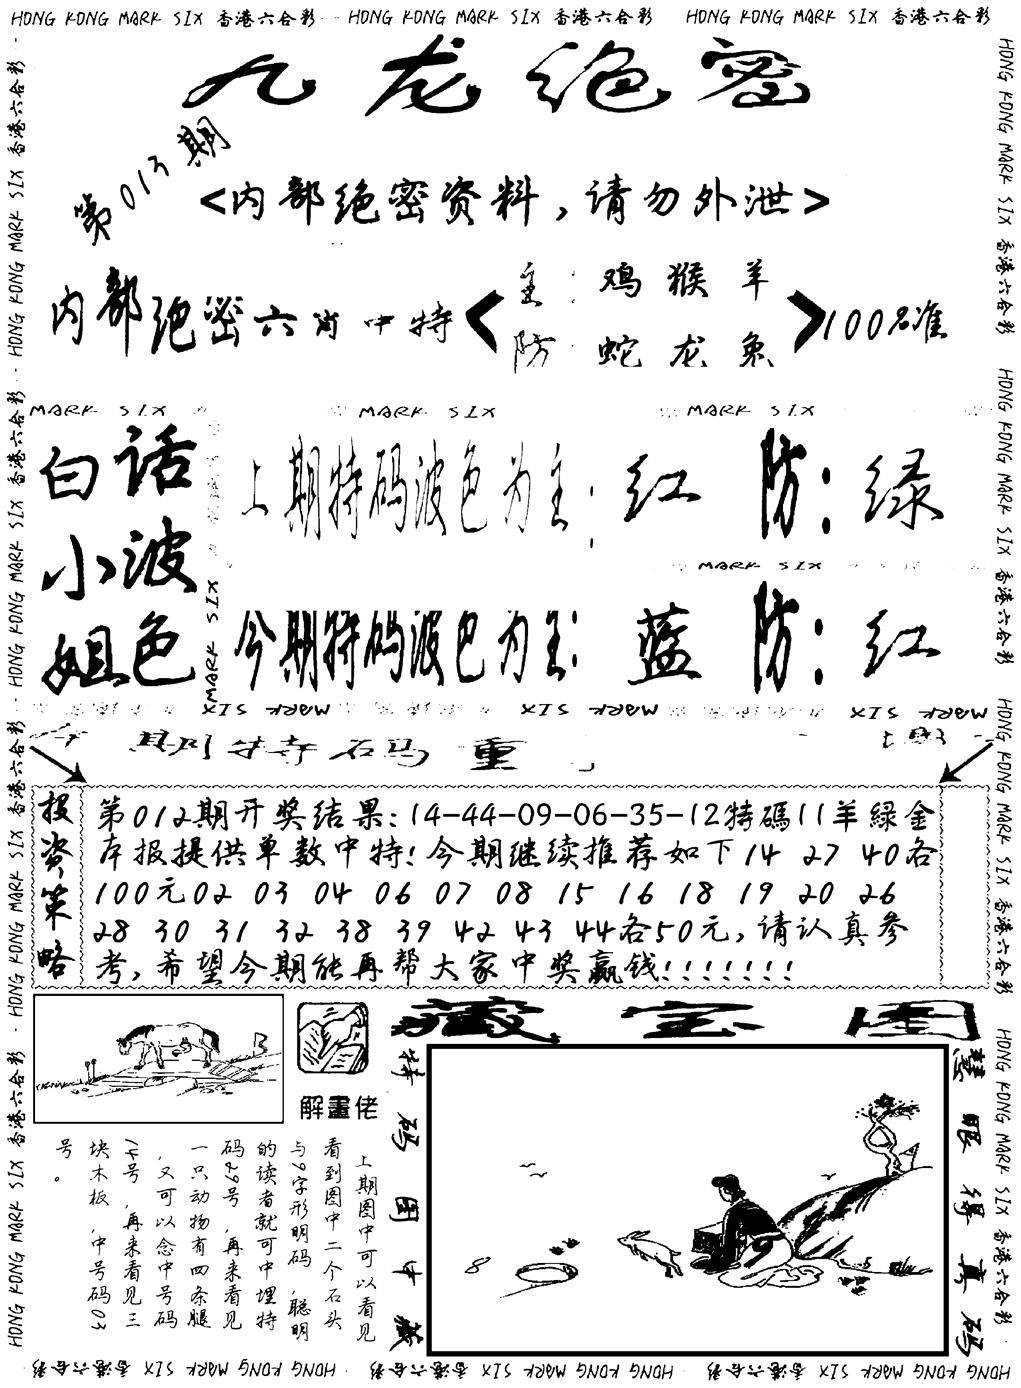 HONG KONG MARK SIX 香港六合彩 HONG KONG MARK SIX 香港六合彩 HONG KONG MARK SIX 香港六合彩
九龙绝密
第013期
<内部绝密资料,请勿外泄>
内部绝密六肖中特
主:鸡猴羊
防:蛇龙兔
100%准
MARK SIX MARK SIX MARK SIX
白话
小波
姐色
上期特码波色为主:红 防:绿
MARK SIX
今期特码波色为主:蓝 防:红
MARK SIX
MARK SIX MARK SIX MARK SIX
期特码重
投资策略
第012期开奖结果:14-44-09-06-35-12特碼11羊綠金
本报提供单数中特!今期继续推荐如下14 27 40各
100元02 03 04 06 07 08 15 16 18 19 20 26
28 30 31 32 38 39 42 43 44各50元,请认真参
考,希望今期能再帮大家中奖赢钱!!!!!!!
解畫佬
上期图中可以看见
看到图中二个石头
与9字形明码,聪明
的读者就可中埋特
码29号,再来看见
一只动物有四条腿
,又可以念中号码
14号,再来看见三
块木板,中号码03
号。
藏宝图
特码图中藏
慧眼得真码
8
HONG KONG MARK SIX 香港六合彩 HONG KONG MARK SIX 香港六合彩 HONG KONG MARK SIX 香港六合彩 HONG KONG MARK SIX 香港六合彩
HONG KONG MARK SIX 香港六合彩 HONG KONG MARK SIX 香港六合彩 HONG KONG MARK SIX 香港六合彩 HONG KONG MARK SIX 香港六合彩
HONG KONG MARK SIX 香港六合彩 HONG KONG MARK SIX 香港六合彩 HONG KONG MARK SIX 香港六合彩